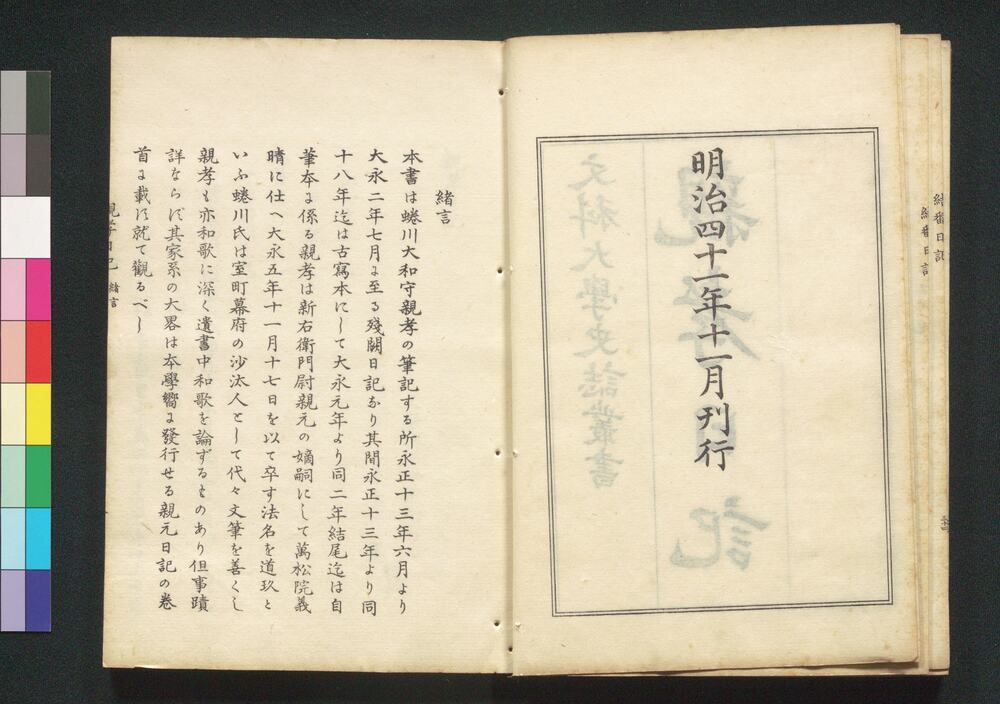 明治四十一年十一月刊行
緒言
本書は蜷川大和守親孝の筆記する所永正十三年六月より
大永二年七月に至る殘闕日記なり其間永正十三年より同
十八年迄は古寫本にして大永元年より同二年結尾迄は自
筆本に係る親孝は新右衛門尉親元の嫡嗣にして萬松院義
晴に仕へ大永五年十一月十七日を以て卒す法名を道玖と
いふ蜷川氏は室町幕府の沙汰人として代々文筆を善くし
親孝も亦和歌に深く遺書中和歌を論ずるものあり但事蹟
詳ならず其家系の大畧は本學嚮に發行せる親元日記の卷
首に載す就て觀るべし
親孝日記 緒言
結番日記
結番日記